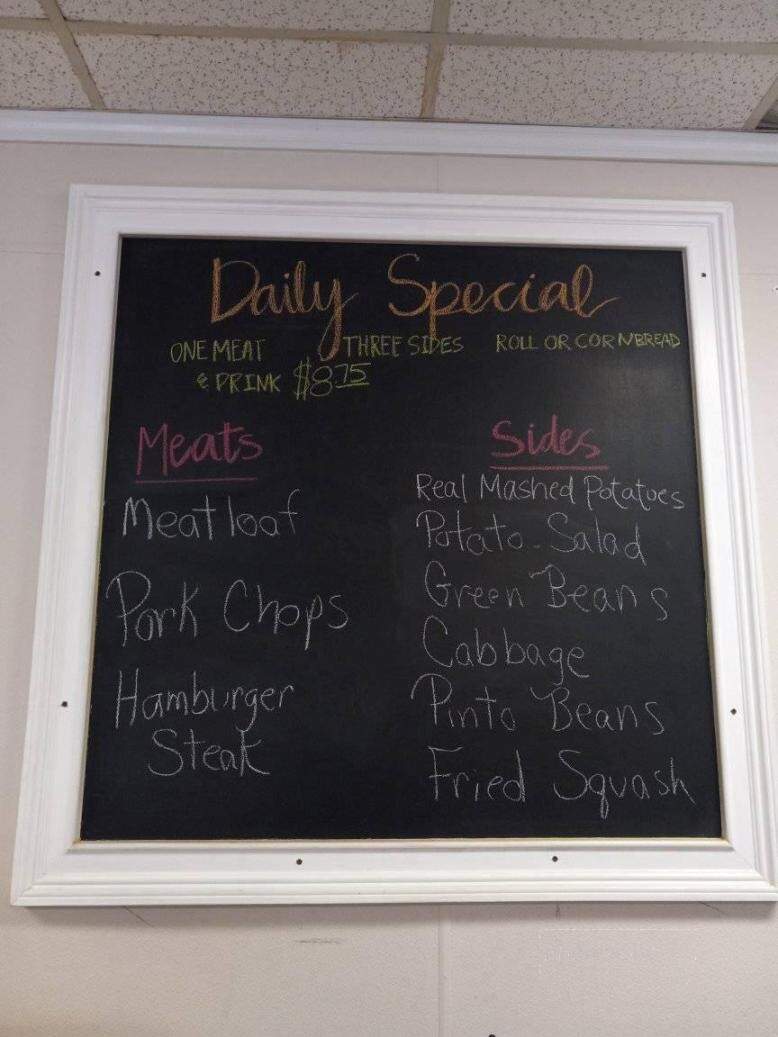 Daily Special
ONE MEAT THREE SIDES ROLL OR CORNBREAD
& DRINK $8.75
Meats
Meatloaf
Pork Chops
Hamburger
Steak
Sides
Real Mashed Potatoes
Potato Salad
Green Beans
Cabbage
Pinto Beans
Fried Squash